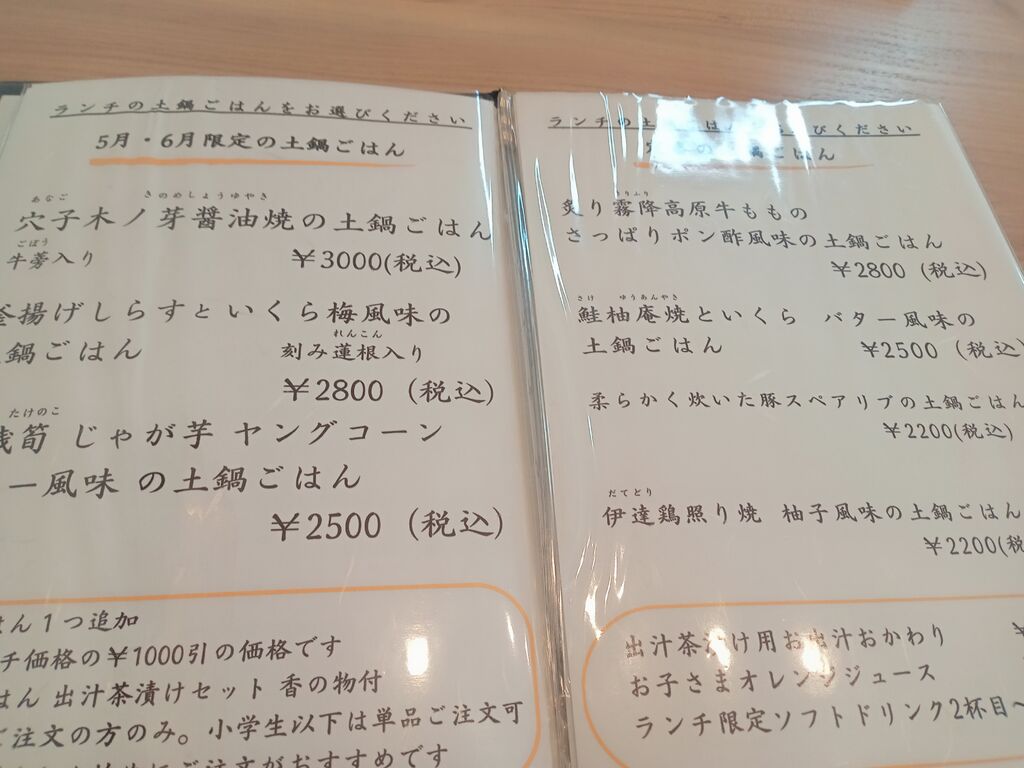 ランチの土鍋ごはんをお選びください
5月・6月限定の土鍋ごはん
あなご きのめしょうゆやき
穴子木ノ芽醤油焼の土鍋ごはん
ごぼう
牛蒡入り ¥3000(税込)
揚げしらすといくら梅風味の
鍋ごはん
れんこん
刻み蓮根入り
¥2800 (税込)
たけのこ
筍 じゃが芋 ヤングコーン
ー風味 の土鍋ごはん
¥2500 (税込)
はん1つ追加
チ価格の¥1000引の価格です
はん 出汁茶漬けセット 香の物付
ご注文の方のみ。小学生以下は単品ご注文可
ご注文がおすすめです
ランチの土 は びください
の ごはん
きりふり
炙り霧降高原牛ももの
さっぱりポン酢風味の土鍋ごはん
¥2800 (税込)
さけ ゆうあんやき
鮭柚庵焼といくら バター風味の
土鍋ごはん ¥2500 (税込)
柔らかく炊いた豚スペアリブの土鍋ごはん
¥2200(税込)
だてどり
伊達鶏照り焼 柚子風味の土鍋ごはん
¥2200(税
出汁茶漬け用お出汁おかわり ¥
お子さまオレンジジュース
ランチ限定ソフトドリンク2杯目~